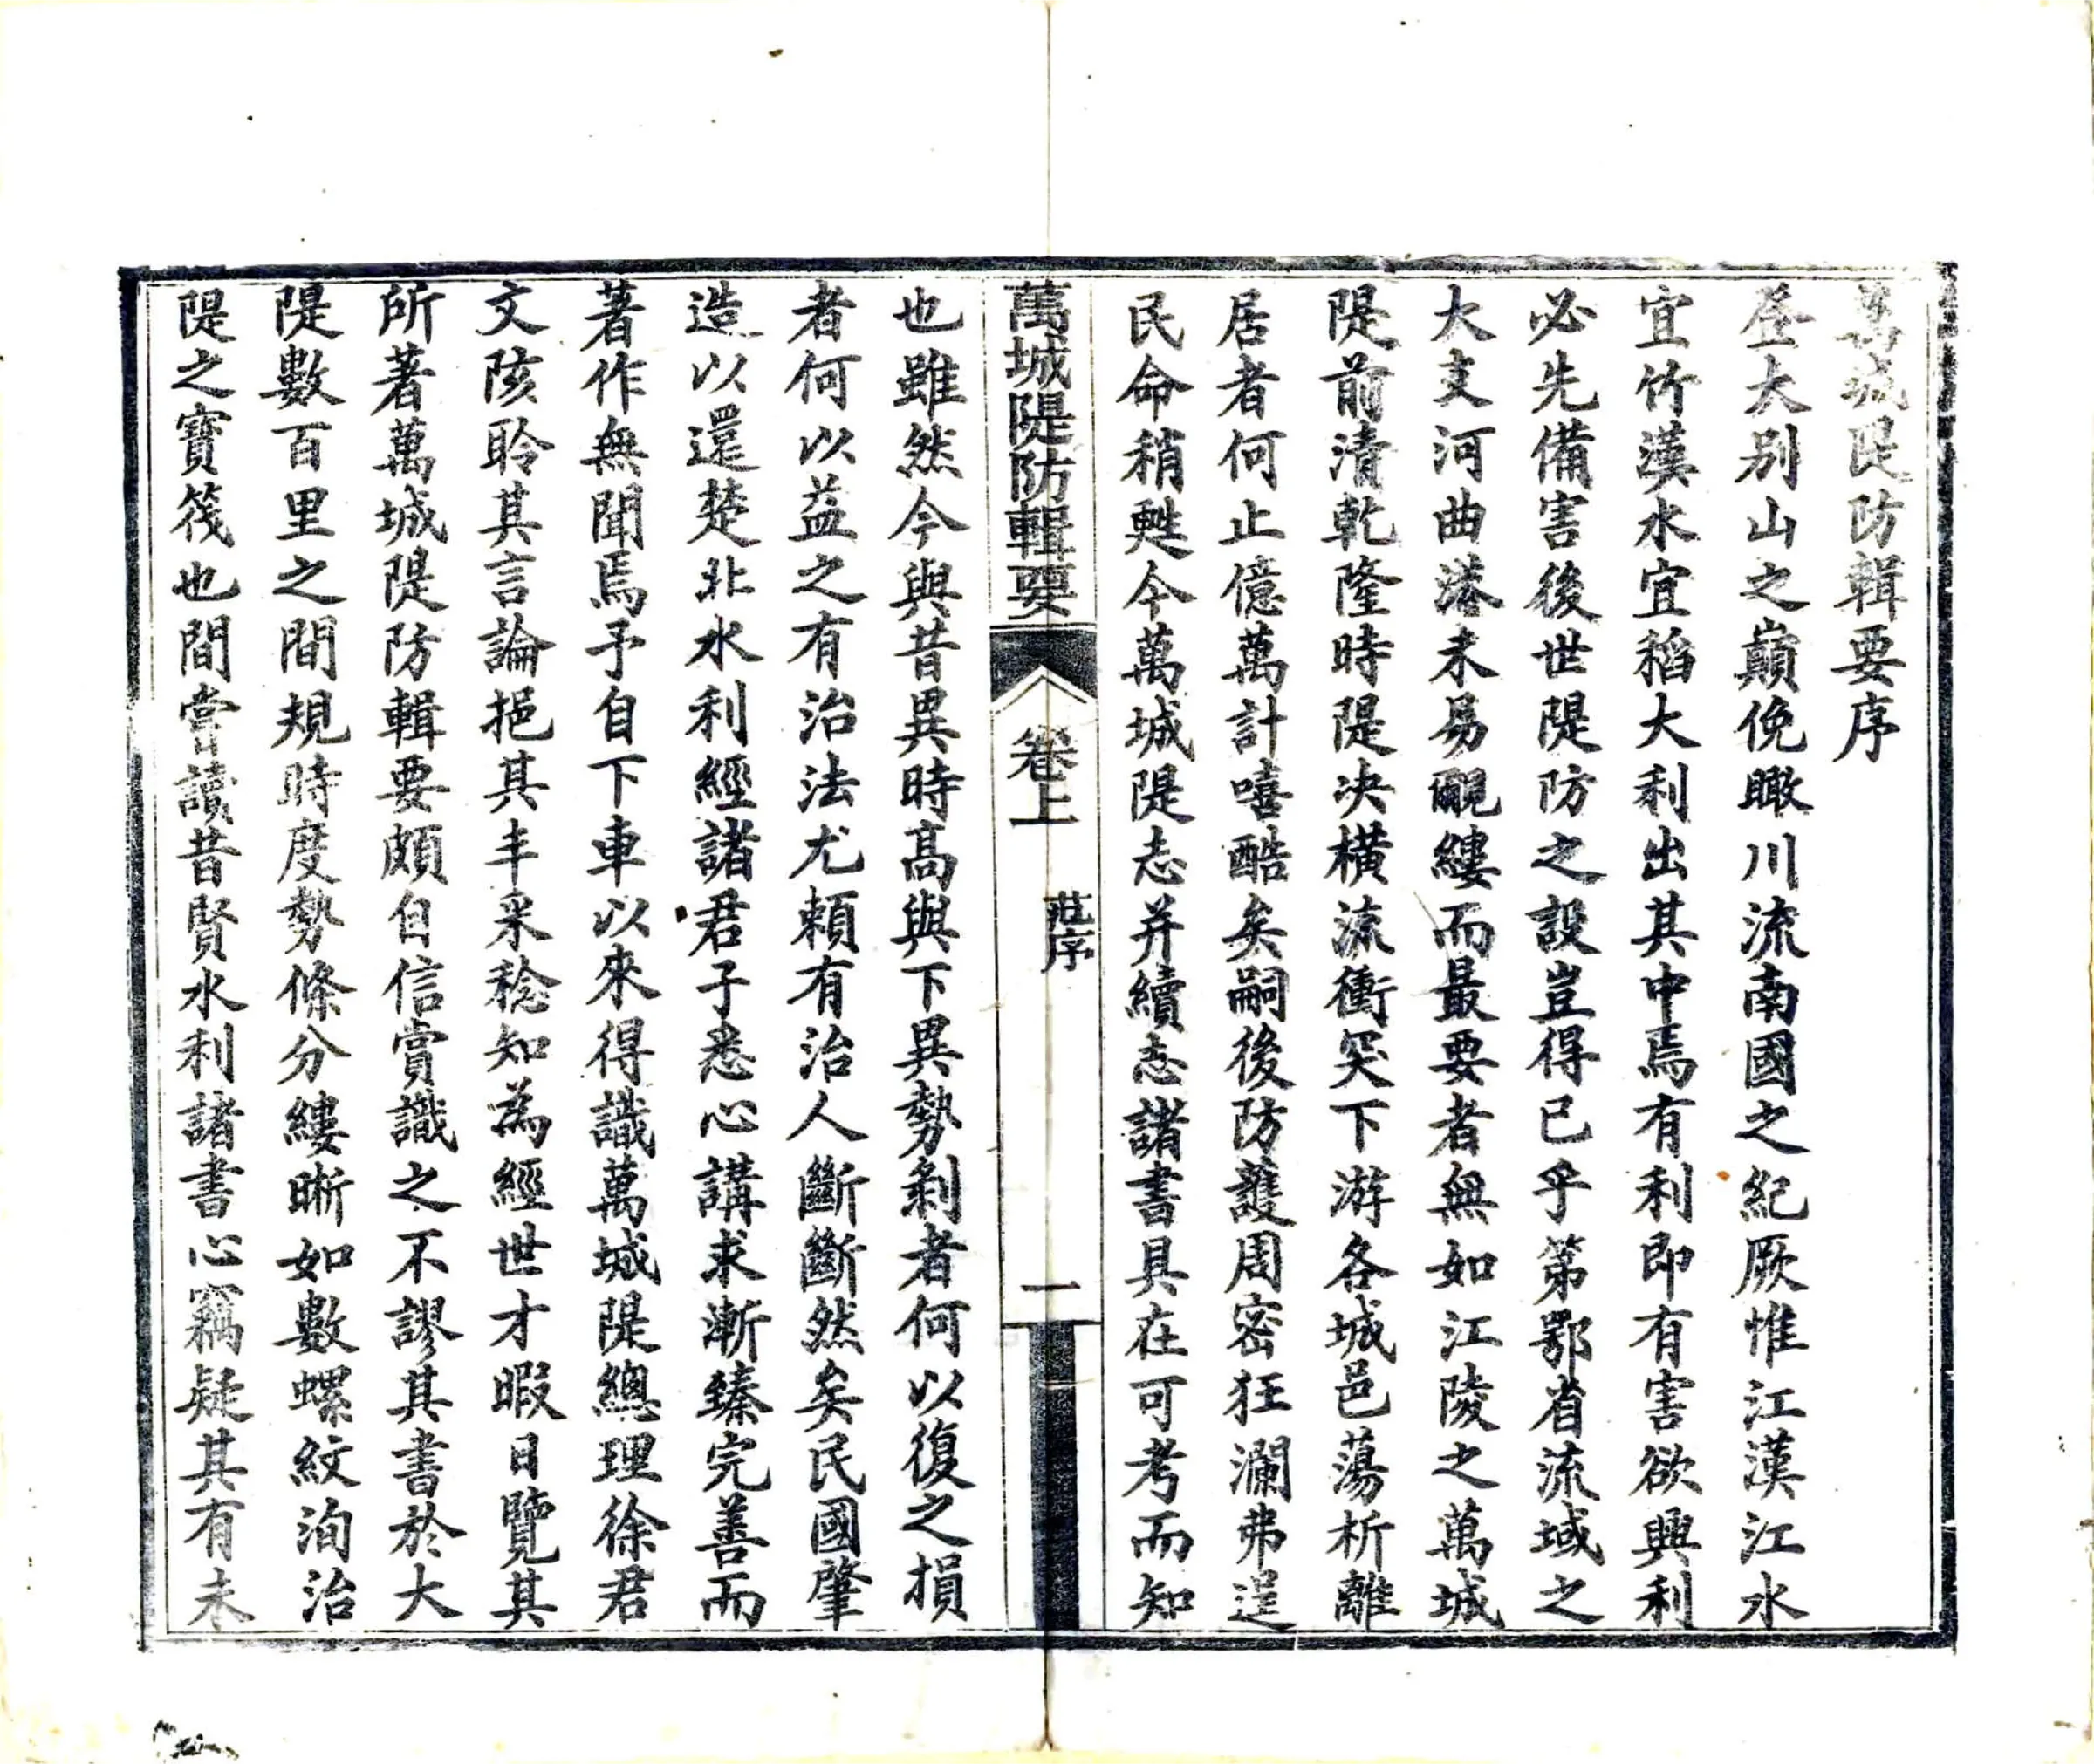 萬城隄防輯要序
登大別山之巔俛瞰川流南國之紀厥惟江漢江水
宜竹漢水宜稻大利出其中焉有利即有害欲興利
必先備害後世隄防之設豈得已乎第鄂省流域之
大支河曲港未易覼縷而最要者無如江陵之萬城
隄前清乾隆時隄决橫流衝突下游各城邑蕩析離
居者何止億萬計嘻酷矣嗣後防護周密狂瀾弗逞
民命稍甦今萬城隄志并續志諸書具在可考而知
萬城隄防輯要
卷上
范序
一
也雖然今與昔異時高與下異勢剝者何以復之損
者何以益之有治法尤賴有治人斷斷然矣民國肇
造以還楚北水利經諸君子悉心講求漸臻完善而
著作無聞焉予自下車以來得識萬城隄總理徐君
文陔聆其言論挹其丰采稔知為經世才暇日覽其
所著萬城隄防輯要頗自信賞識之不謬其書於大
隄數百里之間規時度勢條分縷晰如數螺紋洵治
隄之寶筏也間嘗讀昔賢水利諸書心竊疑其有未